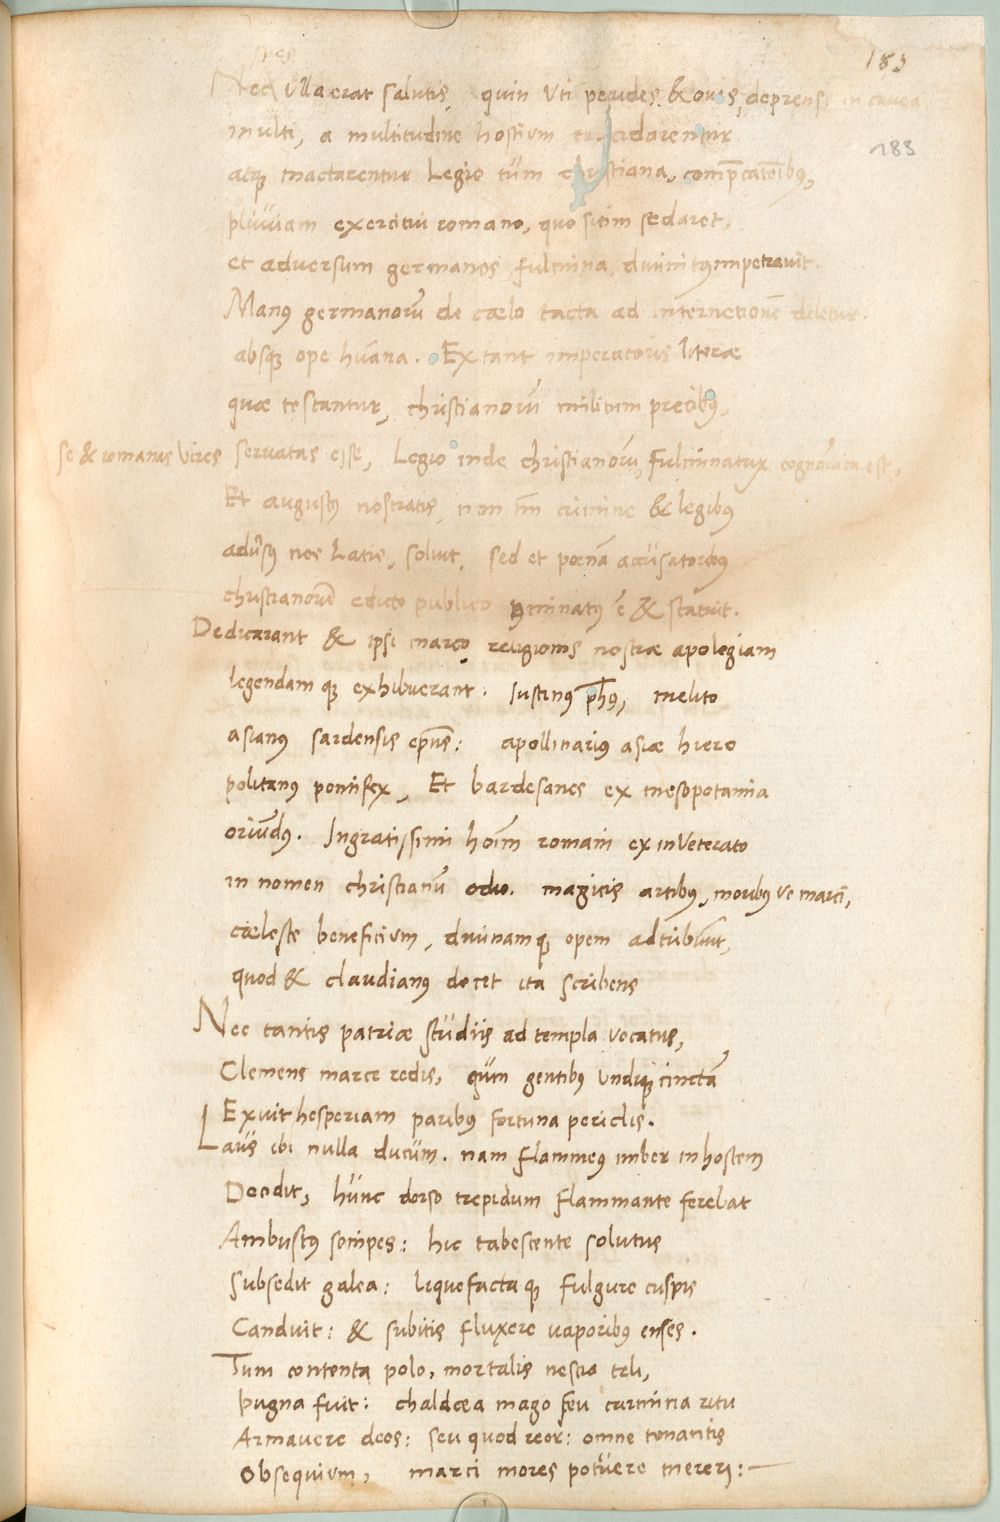 183
183
spes
Nec ulla erat salutis, quin uti pecudes & oues, deprensi in cauea
inulti, a multitudine hostium trucidarentur
atq3 mactarentur Legio tum christiana, compcatoibus,
pluuiam exercitui romano, quo sitim sedaret,
et aduersum germanos fulmina, diuinitus impetrauit.
Manus germanorū de cœlo tacta ad internetionē deletur.
absq3 ope hūana. Extant imperatoris literæ
quæ testantur, christianorū militum precibus,
se & romanas vires seruatas esse, Legio inde christianorū, Fulminatrix cognoīata est,
Et augustus nostratis, non tm̄ crimine & legibus
adūsus nos Latis, soluit, sed et pœnā accusatoribus
christianorū edicto publico 9minatus ē & statuit.
Dedicarant & ipsi marco religionis nostræ apolegiam
legendam q3 exhibuerant. Iustinus ph̄us, melito
asianus sardensis ep̄us: apollinarius asiæ hiero
politanus pontifex, Et bardesanes ex mesopotamia
oriūdus. Ingratissimi hoīm romani ex inueterato
in nomen christianū odio. magicis artibus, moribus ve marci,
cœleste beneficium, diuinamq3 opem adtribūut,
quod & claudianus docet ita scribens
Nec tantis patriæ studiis ad templa vocatus,
Clemens marce redis, qum gentibus undiq3 cinctā
Exuit hesperiam paribus fortuna periclis.
Laus ibi nulla ducum. nam flammeus imber in hostem
Decidit, hunc dorso trepidum flammante ferebat
Ambustus sonipes: hic tabescente solutus
Subsedit galea: liquefactaq3 fulgure cuspis
Canduit: & subitis fluxere vaporibus enses.
Tum contenta polo, mortalis nescia teli,
Pugna fuit: chaldœa mago seu carmina ritu
Armauere deos: seu quod reor: omne tonantis
Obsequium, marci mores potuere mereri:—